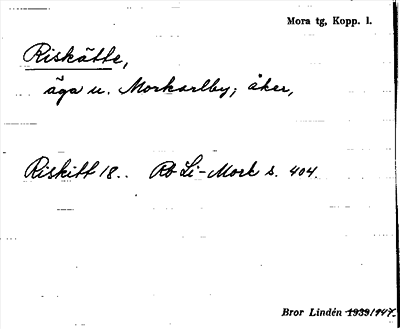 Mora tg, Kopp. l.
Riskätte,
äga u. Morkarlby; åker,
Riskitt 18.. Rb Li-Mork s. 404.
Bror Lindén 1939/1947.